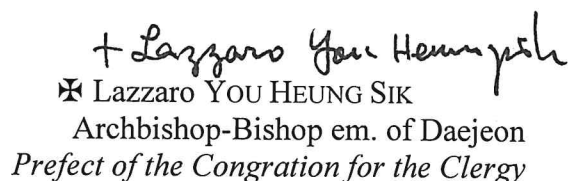 + Lazzaro You Heung sik
✠ Lazzaro YOU HEUNG SIK
Archbishop-Bishop em. of Daejeon
Prefect of the Congration for the Clergy